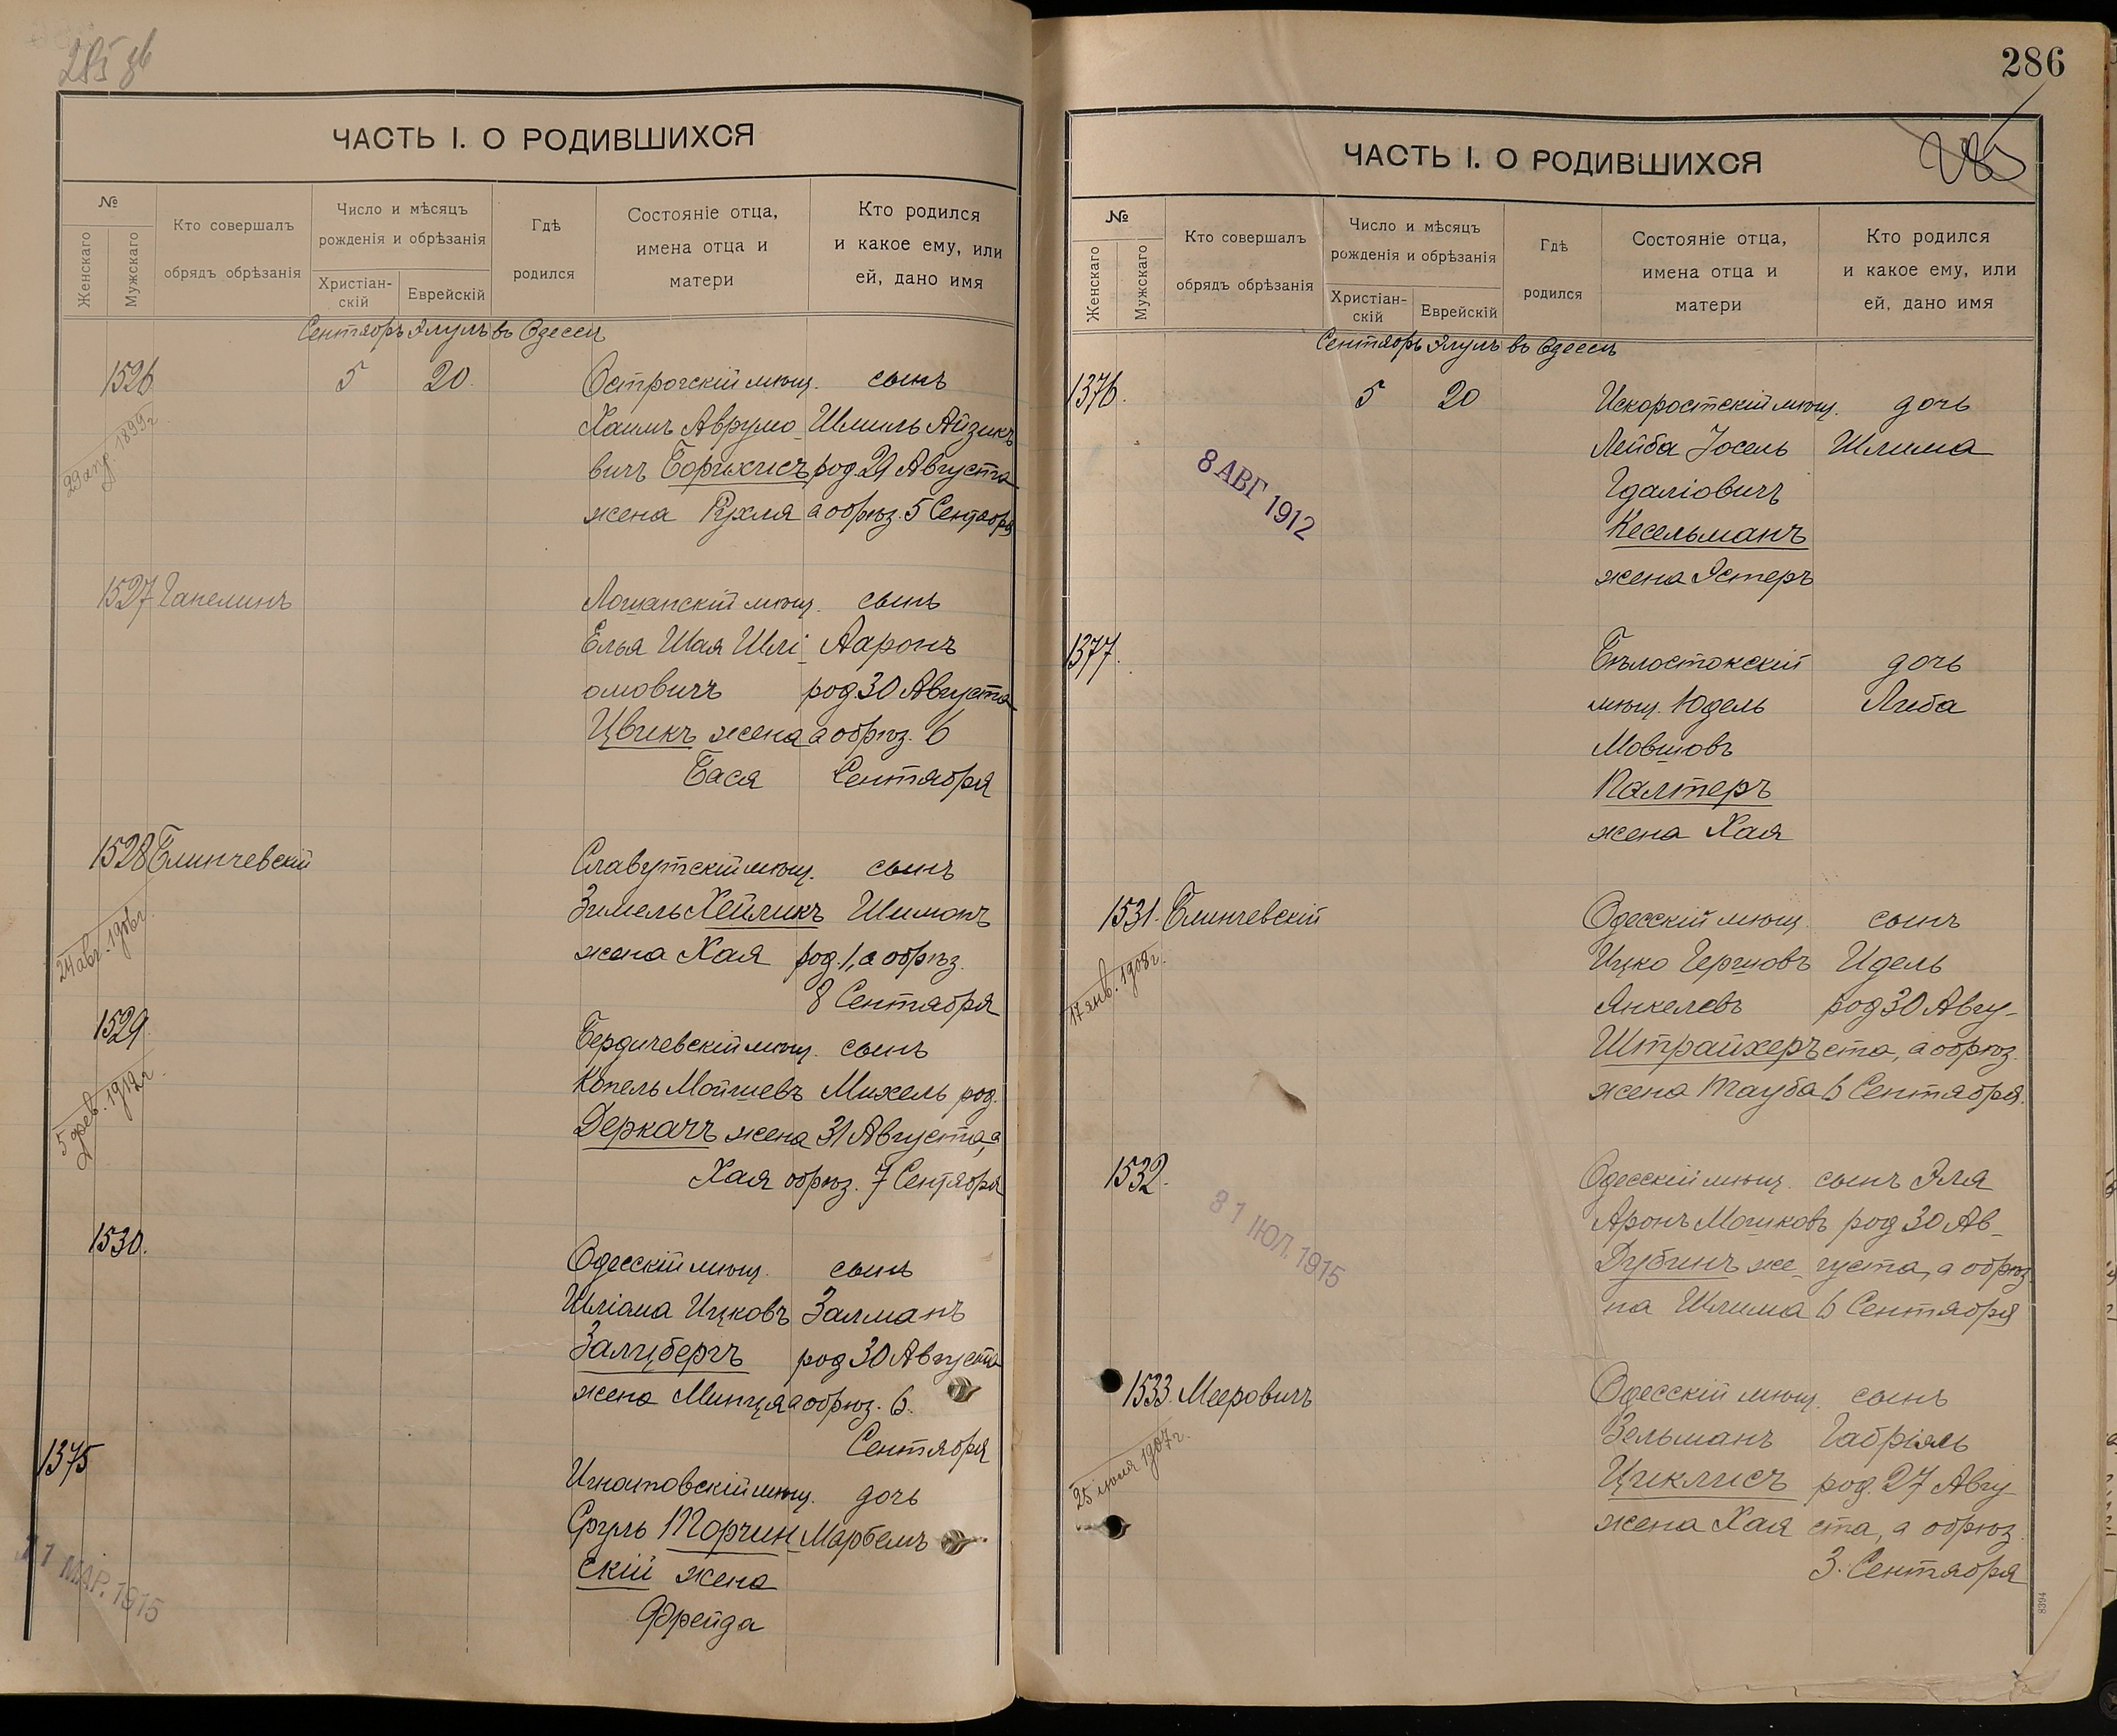 285 об
ЧАСТЬ I. О РОДИВШИХСЯ
№
Женскаго
Мужскаго
Кто совершалъ
обрядъ обрѣзанія
Число и мѣсяцъ
рожденія и обрѣзанія
Христіан-
скій
Еврейскій
Гдѣ
родился
Состояніе отца,
имена отца и
матери
Кто родился
и какое ему, или
ей, дано имя
Сентябрь Элулъ въ Одессѣ
1526 5 20. Острогскій мѣщ. сынъ
Хаимъ Аврумо- Шмиль Айзикъ
29 апр. 1899 г.
вичъ Борихисъ род. 29 Августа
жена Рухля а обрѣз. 5 Сентября
1527 Гапелинъ Лошанскій мѣщ. сынъ
Елья Шая Шлі- Ааронъ
омовичъ род. 30 Августа
Цвикъ жена а обрѣз. 6
Бася Сентября
1528 Блинчевскій Славутскій мѣщ. сынъ
Зимель Хейликъ Шимонъ
24 авг. 1906 г.
жена Хая род. 1, а обрѣз.
8 Сентября
1529. Бердичевскій мѣщ. сынъ
Копель Мошиевъ Михель род.
5 фев. 1912 г.
Деркачъ жена 31 Августа, а
Хая обрѣз. 7 Сентября
1530. Одесскій мѣщ. сынъ
Шліома Ицковъ Залманъ
Залцбергъ род 30 Августа
жена Минця а обрѣз. 6.
Сентября
1375 Игнатовскій мѣщ. дочь
Сруль Торчин- Марбемъ
скій жена
МАР. 1915
Фрейда
286
285
ЧАСТЬ I. О РОДИВШИХСЯ
№
Женскаго
Мужскаго
Кто совершалъ
обрядъ обрѣзанія
Число и мѣсяцъ
рожденія и обрѣзанія
Христіан-
скій
Еврейскій
Гдѣ
родился
Состояніе отца,
имена отца и
матери
Кто родился
и какое ему, или
ей, дано имя
Сентябрь Элулъ въ Одессѣ
1376. 5 20 Искоростскій мѣщ. дочь
Лейба Іосель Шлима
8 АВГ 1912
Гдаліовичъ
Кесельманъ
жена Эстеръ
1377. Бѣлостокскій дочь
мѣщ. Юдель Либа
Мовшовъ
Палтеръ
жена Хая
1531. Блинчевскій Одесскій мѣщ. сынъ
Ицко Гершовъ Идель
17 янв. 1908 г.
Янкелевъ род 30 Авгу-
Штрайхеръ ста, а обрѣз.
жена Тауба 6 Сентября.
1532. Одесскій мѣщ. сынъ Эля
31 ІЮЛ. 1915
Аронъ Мошковъ род 30 Ав-
Дубинъ же- густа, а обрѣз.
на Шлима 6 Сентября
1533. Мееровичъ Одесскій мѣщ. сынъ
Зельманъ Габріель
25 іюля 1907 г.
Циклисъ род. 27 Авгу-
жена Хая ста, а обрѣз.
3. Сентября
8394